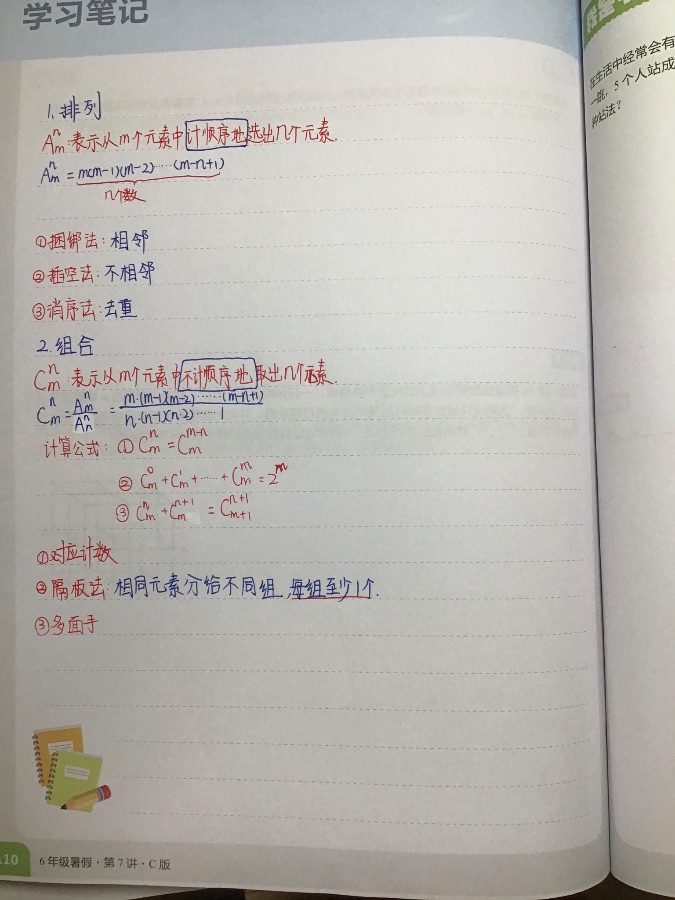 学习笔记
1. 排列
Aₘⁿ:表示从m个元素中计顺序地选出n个元素.
Aₘⁿ = m(m-1)(m-2)……(m-n+1)
n个数
①捆绑法:相邻
②插空法:不相邻
③消序法:去重
2. 组合
Cₘⁿ:表示从m个元素中不计顺序地取出n个元素.
Cₘⁿ = Aₘⁿ/Aₙⁿ = m·(m-1)(m-2)……(m-n+1)/n·(n-1)(n-2)……1
计算公式:① Cₘⁿ = Cₘᵐ⁻ⁿ
② Cₘ⁰ + Cₘ¹ + …… + Cₘᵐ = 2ᵐ
③ Cₘⁿ + Cₘⁿ⁺¹ = Cₘ₊₁ⁿ⁺¹
①对应计数
②隔板法:相同元素分给不同组,每组至少1个.
③多面手
110
6年级暑假·第7讲·C版
在生活中经常会有
一跳,5个人站成
的站法?